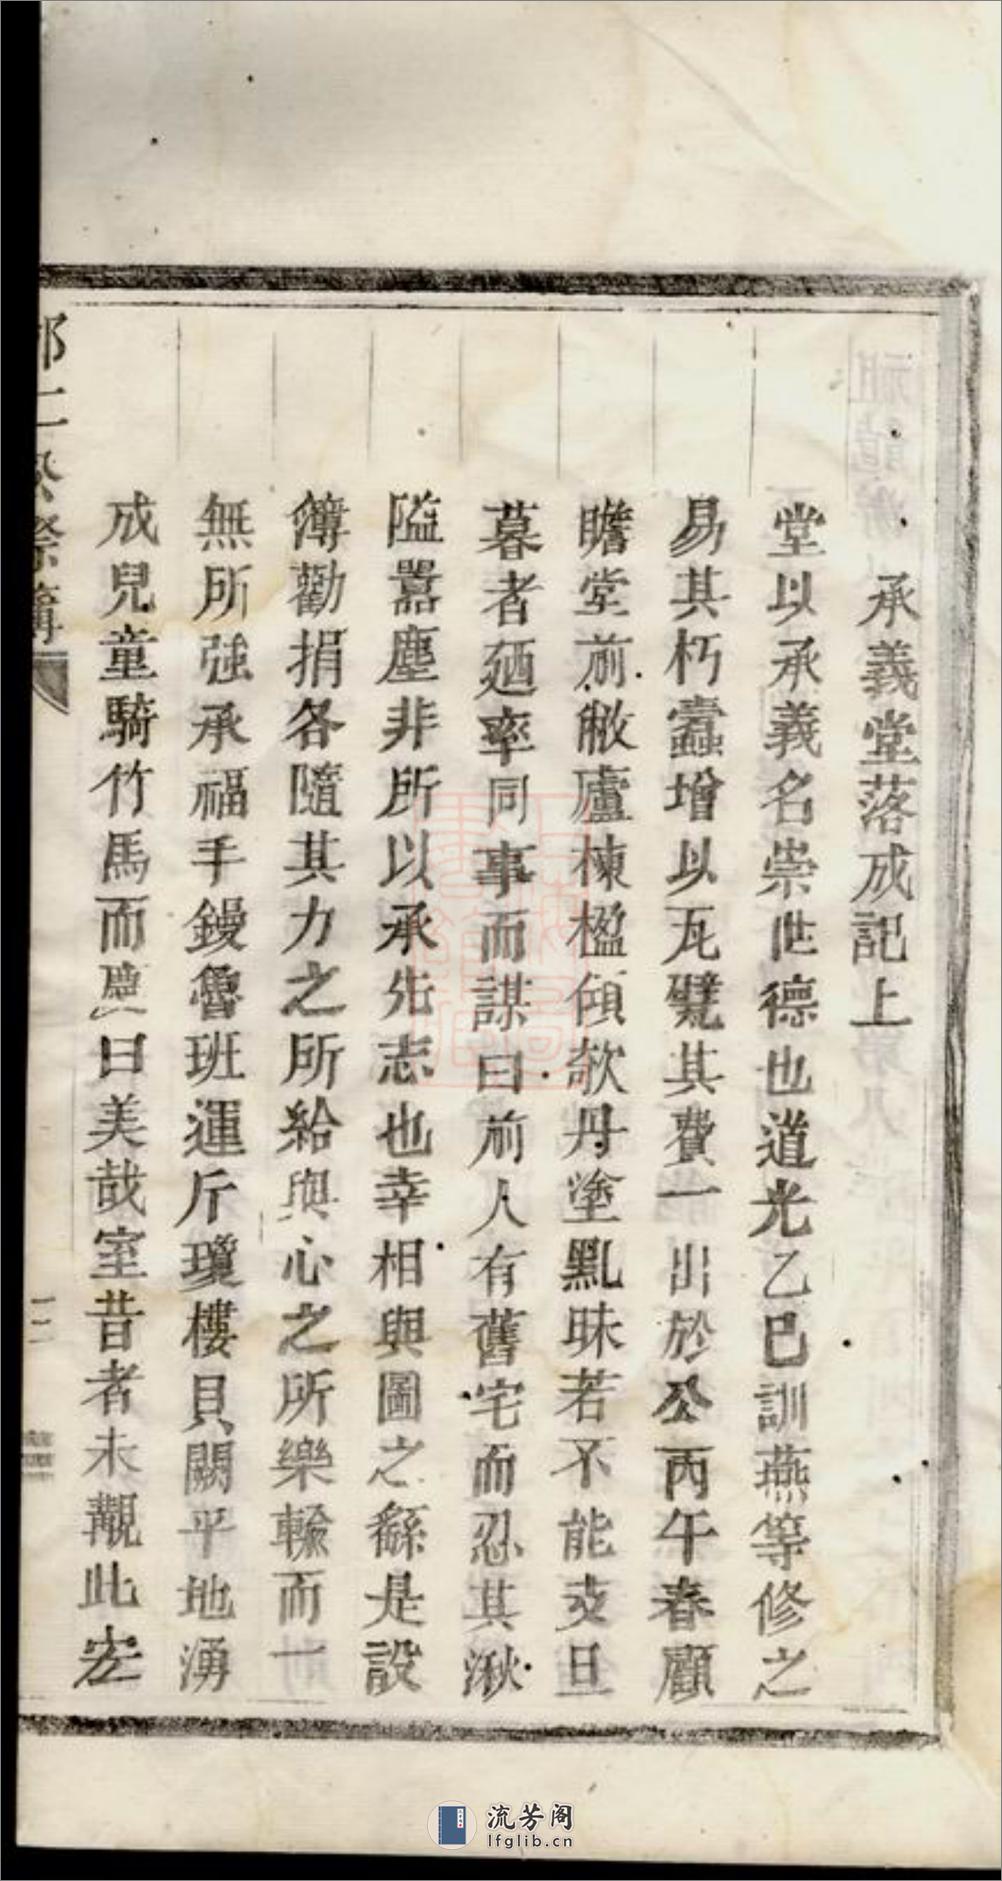 承義堂落成記上
堂以承義名崇世德也道光乙巳訓燕等修之
易其朽蠹增以瓦甓其費一出於公丙午春顧
瞻堂前敝廬棟楹傾欹丹塗黤昧若不能支旦
暮者廼率同事而謀曰前人有舊宅而忍其湫
隘囂塵非所以承先志也幸相與圖之繇是設
簿勸捐各隨其力之所給與心之所樂輸而一
無所強承福手鏝魯班運斤瓊樓貝闕平地湧
成兒童騎竹馬而曰美哉室昔者未覩此宏
仁祭簿
流芳阁
lfglib.cn